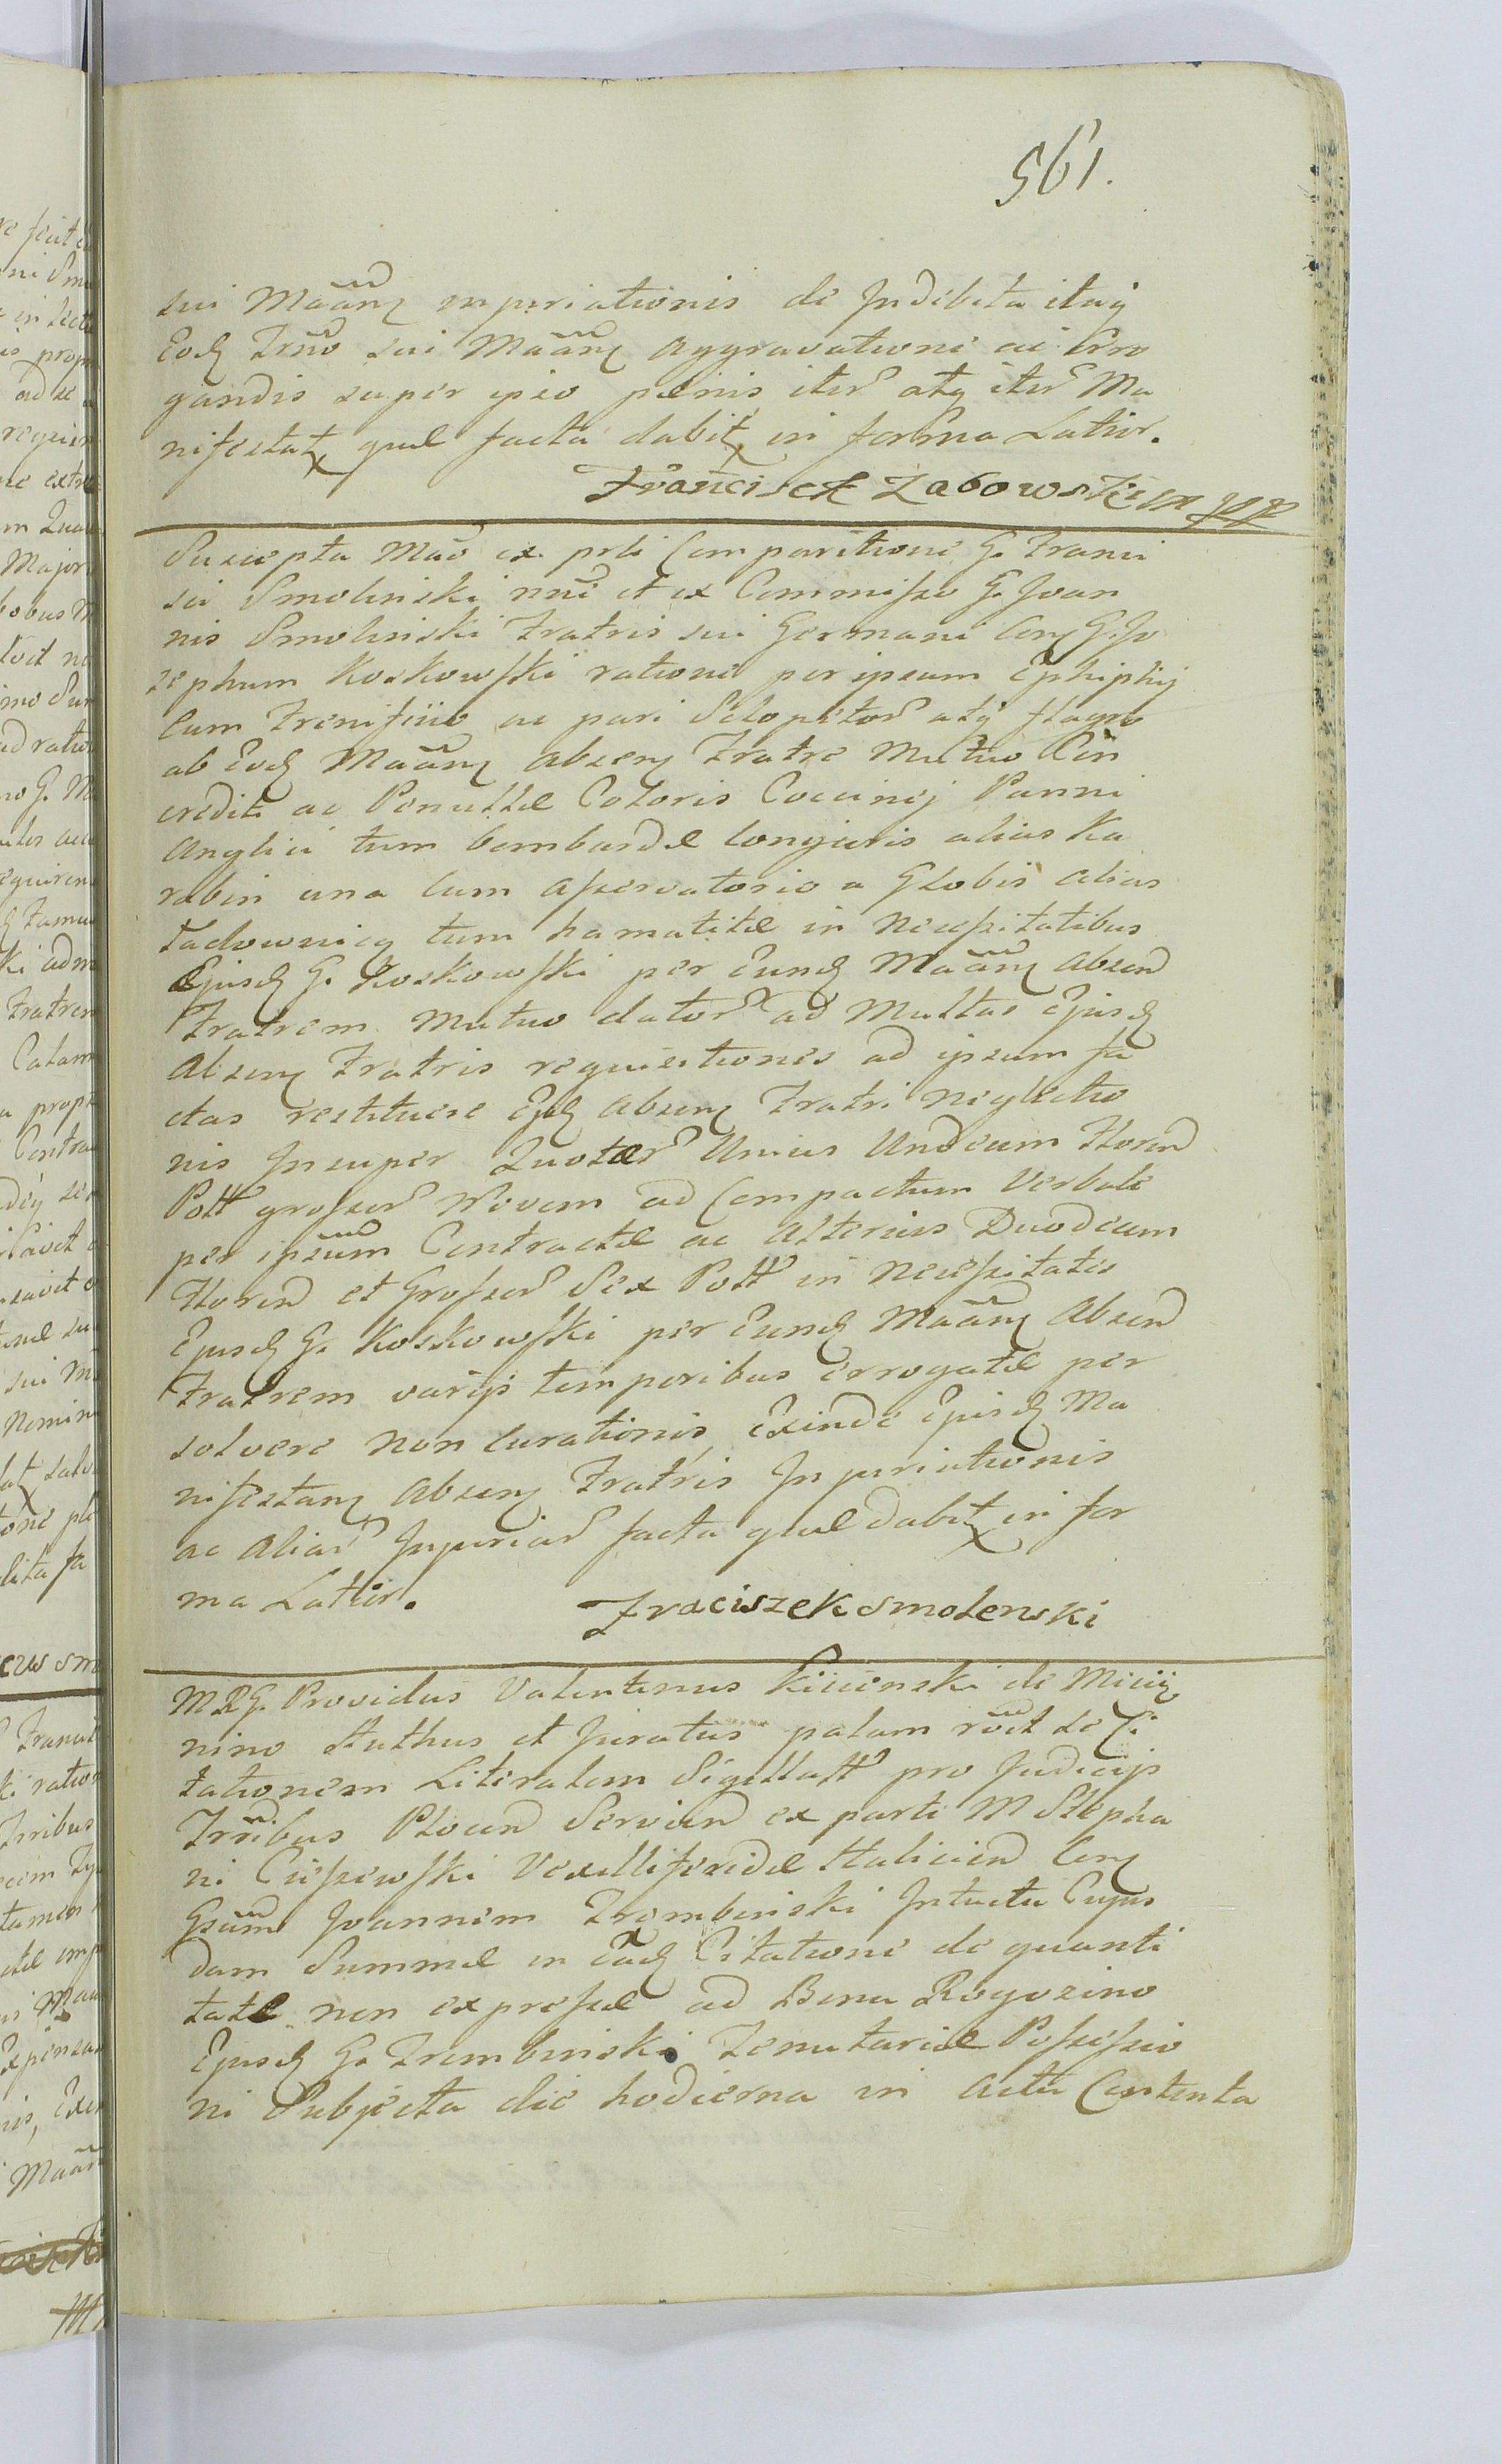 561.
sui Maãnꝫ injuriationis de Indebita itaq̃
Eodꝫ Trño sui Maãnꝫ Aggravatione ac Irro
gandis super ipso pænis iter̃ atqꝫ iter̃ Ma
nifestatꝫ quæ facta dabitꝫ in forma Latior.
Francisek Zabowski mpp
Suscepta Mãõ ex prti Comparitione G. Franci
sci Smolinski ñnĩ et ex Commisso G. Joan
nis Smolinski Fratris sui Germani Conꝫ G. Jo
sephum Koskowski ratione per ipsum Ephiphij
Cum Frenisiio ac pari Sclopetor̃ atq̃ flagro
ab Eodꝫ Maãnꝫ Absenꝫ Fratre Mutuo
credit ac Ponullæ Coloris Coccinej Panni
Anglici tum bombardæ longioris alias Ka
rabin una Cum Asservatorio a Globis alias
Ładownicą tum hamatitæ in Necessitatibus
Ejusdꝫ G. Koskowski per Eundꝫ Maãnꝫ Absend
Fratrem Mutuo dator̃ ad Multas Ejusdꝫ
Absenꝫ Fratris requisitiones ad ipsum fa
ctas restituere Ejdꝫ Absenꝫ Fratri Neglectio
nis Insuper Quotar̃ Unius Undecim Floren̄
Poll̃ grossor̃ Novem ad Compactum Verbale
per ipsum̃ Contractæ ac Alterius Duodecim
Floren̄ et Grossor̃ Sex Poll̃ in Necessitates
Ejusdꝫ G. Koskowski per Eundꝫ Maãnꝫ Absen̄
Fratrem varijs temporibus errogatæ per
solvere non Curationis, Exinde Ejusdꝫ Ma
nifestanꝫ Absenꝫ Fratris Injuriationis
ac Aliar̃ Injuriar̃ facta quæ dabitꝫ in for
ma Latior.
Fraciszek Smolenski
MRG. Providus Valentinus Kicienski de
nino Authus et Juratus palam rõit se Ci
tationem Literalem Sigillatt̃ pro Judicijs
Trñibus Plocen̄ Servien̄ ex parte M Stepha
ni Ciszewski Vexilliferidæ Halicien̄ Conꝫ
Gsum̃ Joannem Trembinski Intuitu Cujus
dam Summæ in Eãdꝫ Citatione de quanti
tate non expressæ ad Bona Rogozino
Ejusdꝫ G. Trembinski Tenutariæ Possessio
ni Subjecta die hodierna in actu Contenta